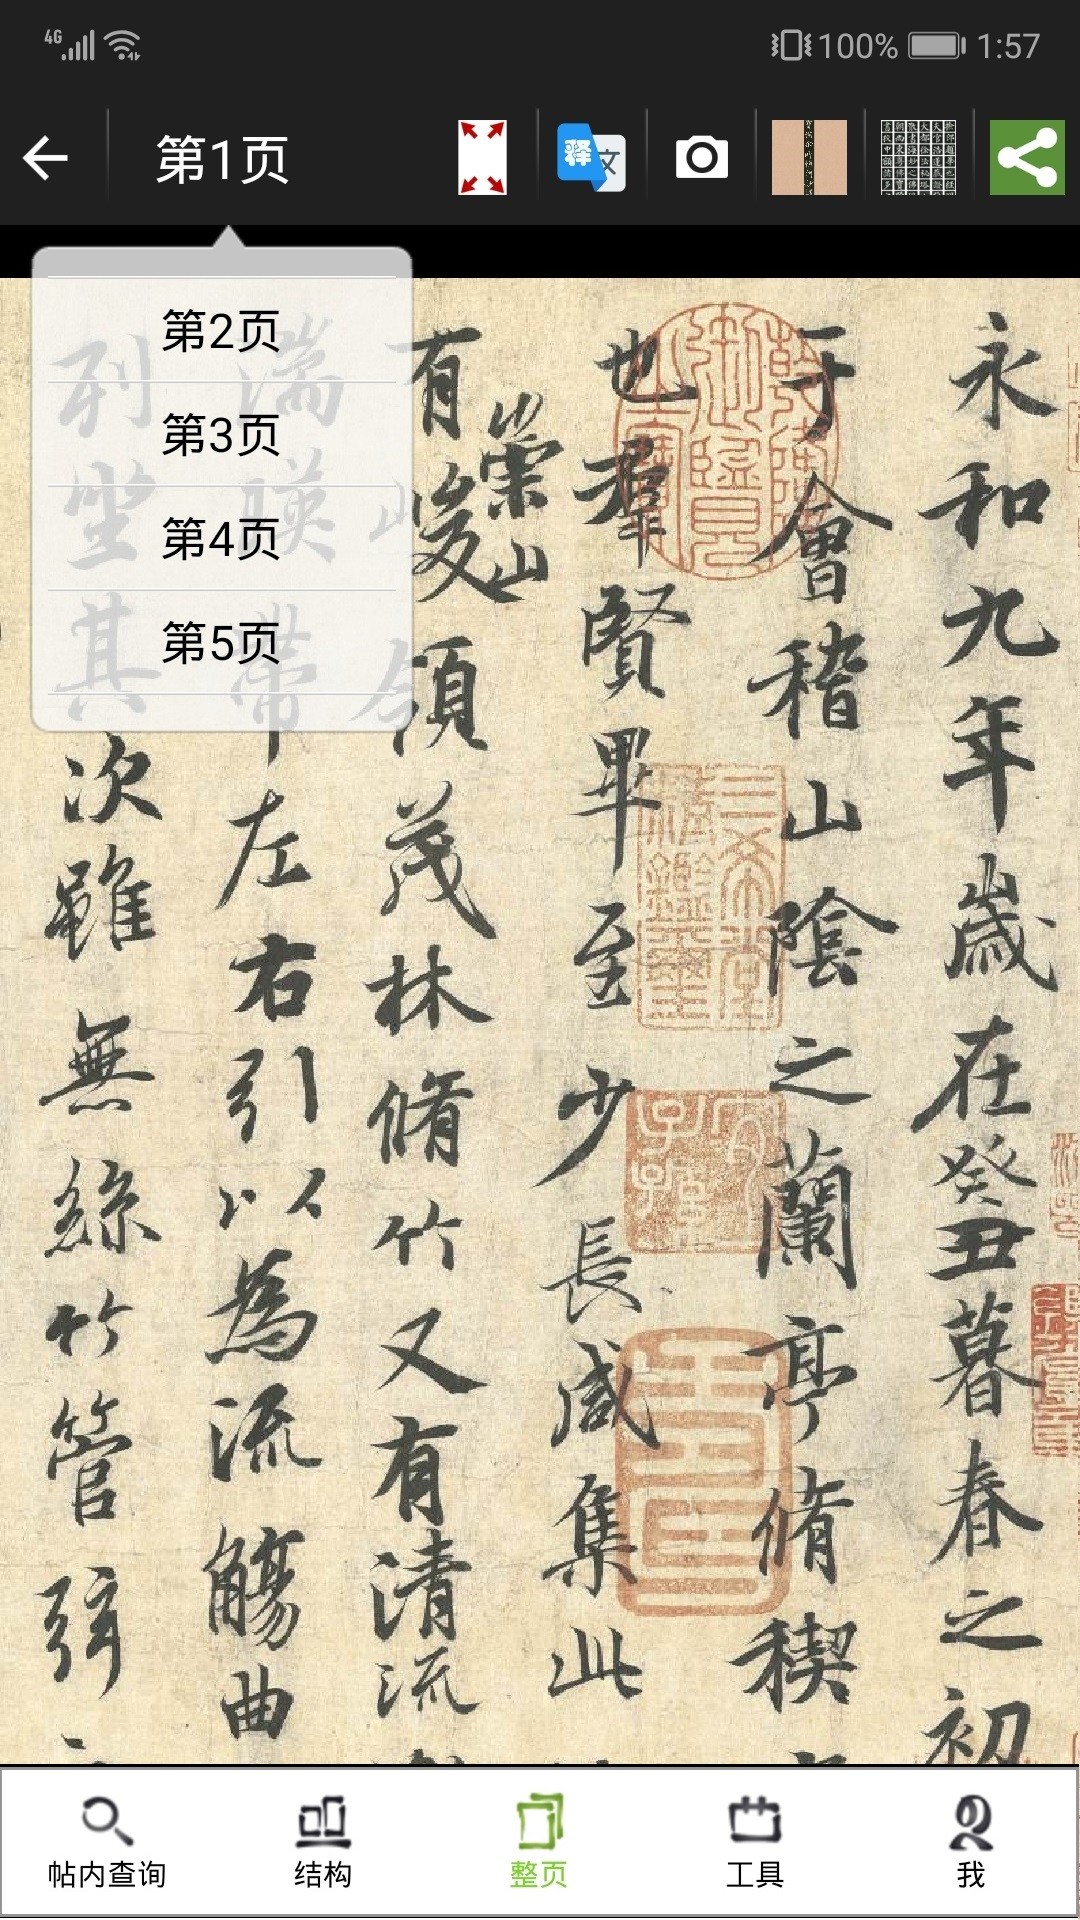 4G 100% 1:57
第1页
释 文
第2页
第3页
第4页
第5页
永和九年歲在癸丑暮春之初
于會稽山陰之蘭亭脩稧
也羣賢畢至少長咸集此
崇山
有峻領茂林脩竹又有清流
湍暎帶左右引以為流觴曲
列坐其次雖無絲竹管弦
帖内查询
结构
整页
工具
我